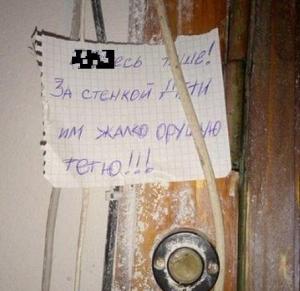 есь тише!
За стенкой дети
им жалко орущую
тётю!!!